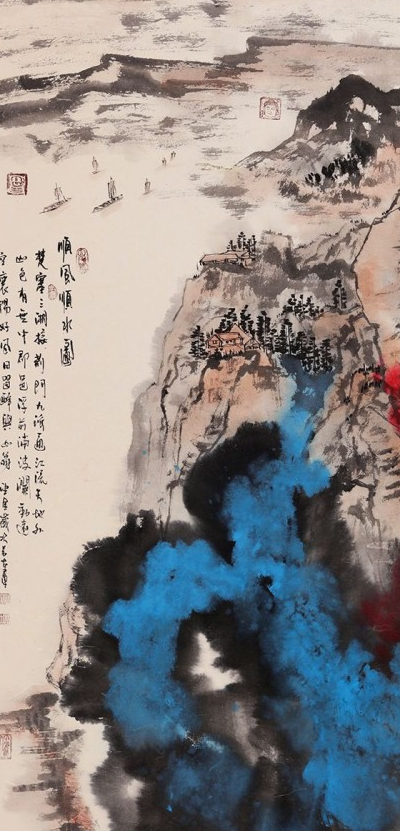 順風順水圖
楚塞三湘接荆門九派通江流天地外
山色有無中郡邑浮前浦波瀾動遠
空襄陽好風日留醉與山翁